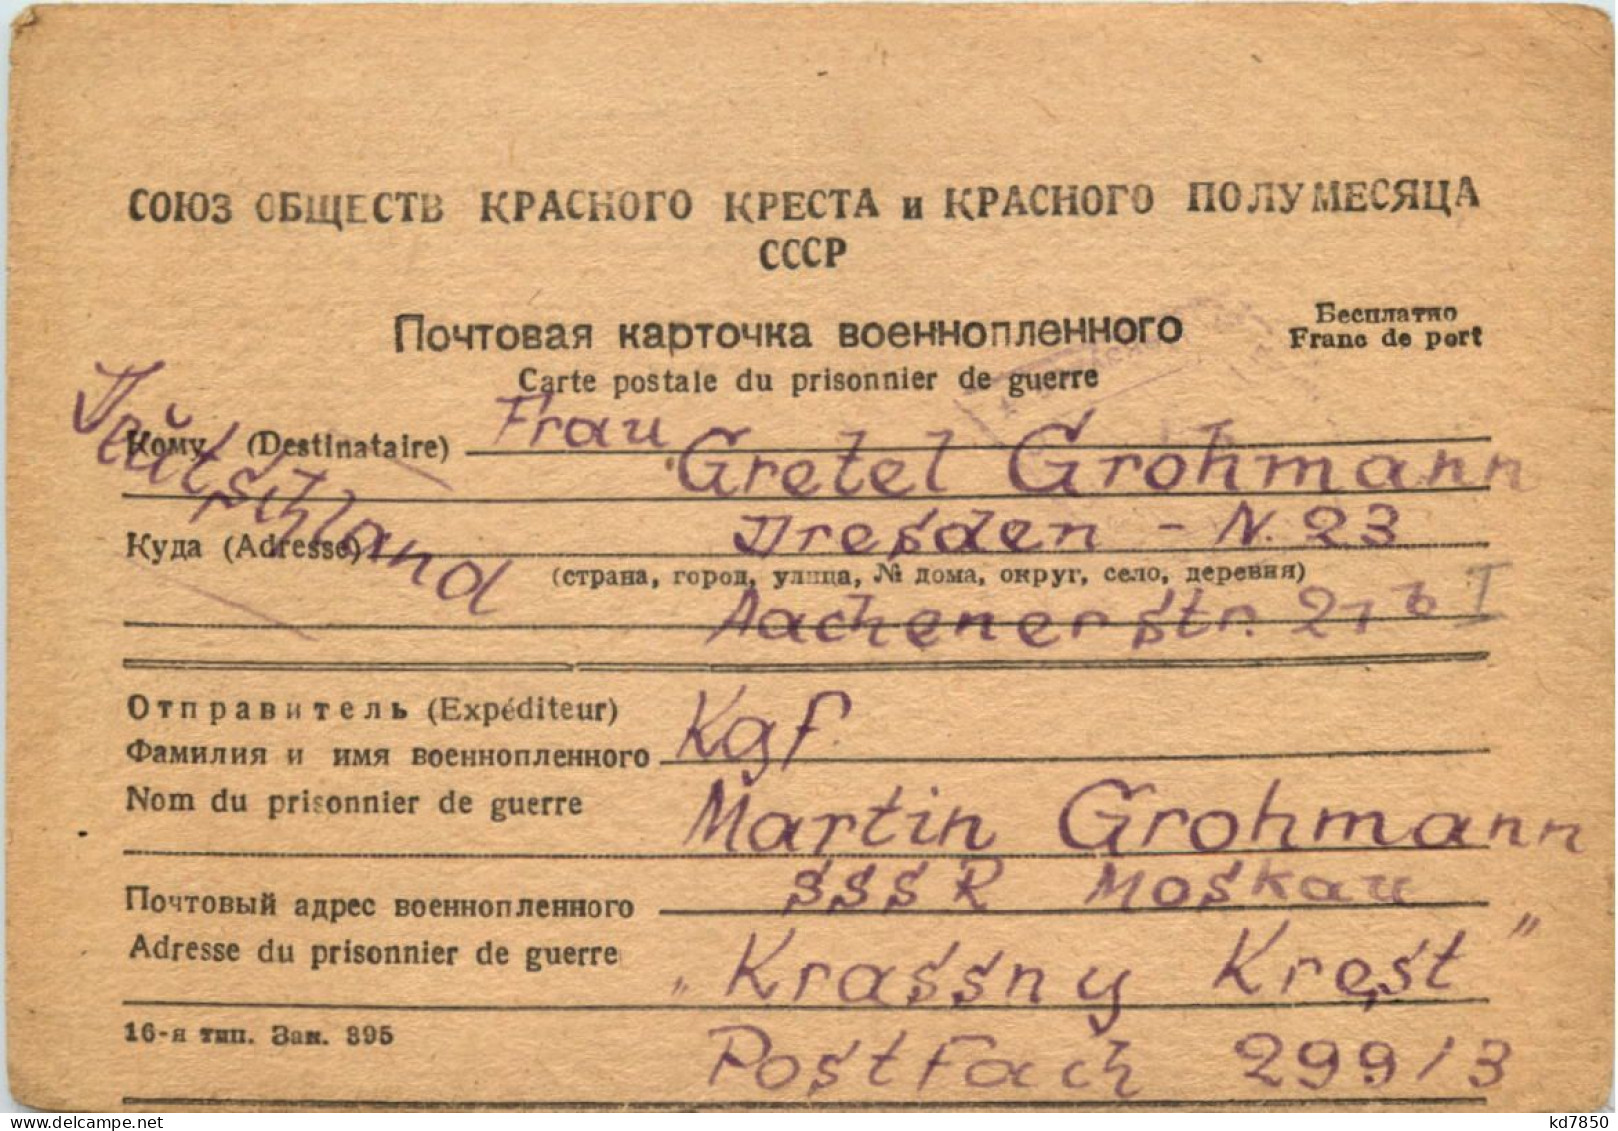 СОЮЗ ОБЩЕСТВ КРАСНОГО КРЕСТА и КРАСНОГО ПОЛУМЕСЯЦА
СССР
Почтовая карточка военнопленного
Carte postale du prisonnier de guerre
Бесплатно
Franc de port
Кому (Destinataire) Frau
Gretel Grohmann
Deutschland
Куда (Adresse) Dresden - N. 23
(страна, город, улица, № дома, округ, село, деревня)
Aachenerstr. 21 b I
Отправитель (Expéditeur)
Фамилия и имя военнопленного Kgf
Nom du prisonnier de guerre
Martin Grohmann
Почтовый адрес военнопленного SSSR Moskau
Adresse du prisonnier de guerre
„Krassny Krest"
16-я тип. Зак. 895
Postfach 299/3
delcampe.net
kd7850